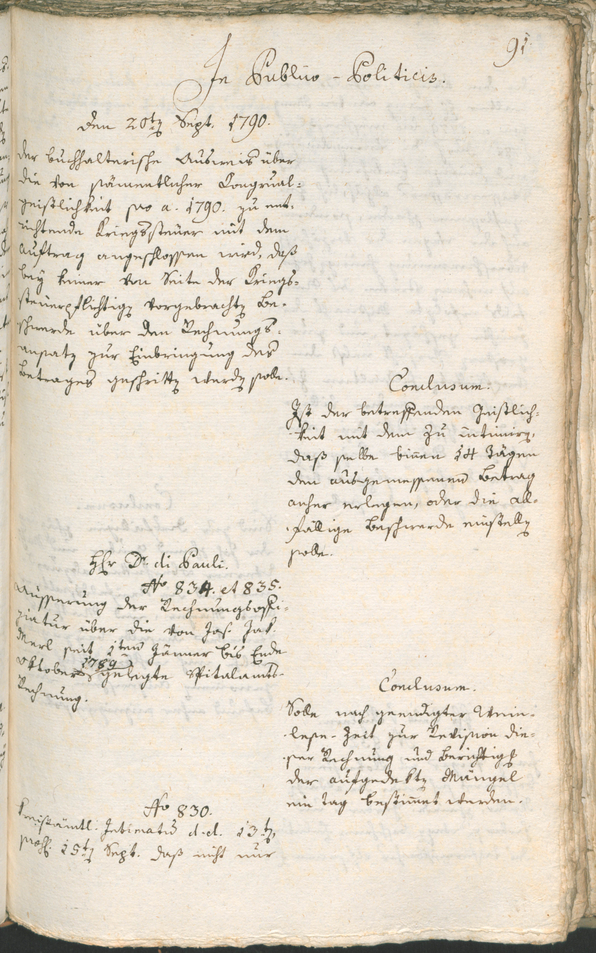 91
In Publico-Politicis.
den 20ten Sept. 1790.
Der buchhalterische Ausweis über
die von sämentlicher Congrual-
geistlichkeit pro a. 1790. zu ent-
richtende Kriegssteuer mit dem
Auftrag angeschlossen wird, daß
bey keiner von Seite der Kriegs-
steuerpflichtigen vorgebrachten Be-
schwerde über den Rechnungs-
ansatz zur Einbringung des
Betrages geschritten werden solle.
Conclusum:
Ist der betreffenden Geistlich-
keit mit dem zu intimiren,
daß selbe binnen 14 Tägen
den ausgemessenen Betrag
anher erlegen, oder die all-
fällige Beschwerde einstellen
solle.
Hr. Dr. di Pauli.
No 834. et 835.
Äusserung der Rechnungsoffi-
ziatur über die von Jos. Jak.
Merl seit 1ten Jänner bis Ende
Oktober 1789 gelegte Spitalamts-
Rechnung.
Conclusum.
Solle nach geendigter Wein-
lese-Zeit zur Revision die-
ser Rechnung und Berichtigung
der aufgedekten Mängel
ein Tag bestimmet werden.
No 830.
Kreisämtl. Intimatum d.d. 13ten,
15ten Sept. daß nicht nur